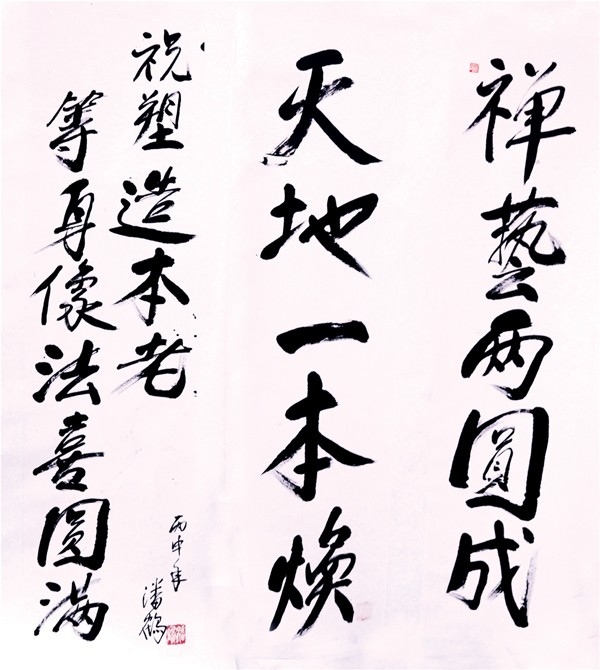 禅藝两圓成
天地一本焕
祝塑造本老
等身像法喜圓满
丙申年
潘鹤